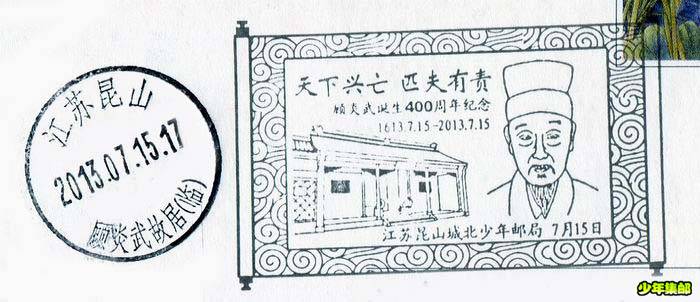 江苏昆山
2013.07.15.17
顾炎武故居(临)
天下兴亡 匹夫有责
顾炎武诞生400周年纪念
1613.7.15-2013.7.15
江苏昆山城北少年邮局 7月15日
少年集邮